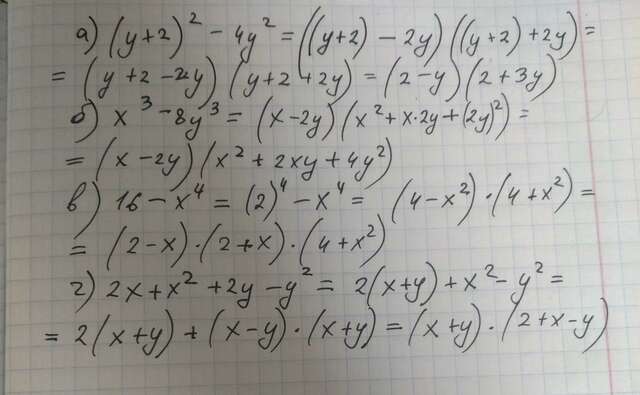 а) (y+2)² - 4y² = ((y+2) - 2y)((y+2) + 2y) =
= (y+2-2y)(y+2+2y) = (2-y)(2+3y)
б) x³ - 8y³ = (x-2y)(x²+x·2y+(2y)²) =
= (x-2y)(x²+2xy+4y²)
в) 16-x⁴ = (2)⁴-x⁴ = (4-x²)·(4+x²) =
= (2-x)·(2+x)·(4+x²)
г) 2x+x²+2y-y² = 2(x+y)+x²-y² =
= 2(x+y)+(x-y)·(x+y) = (x+y)·(2+x-y)